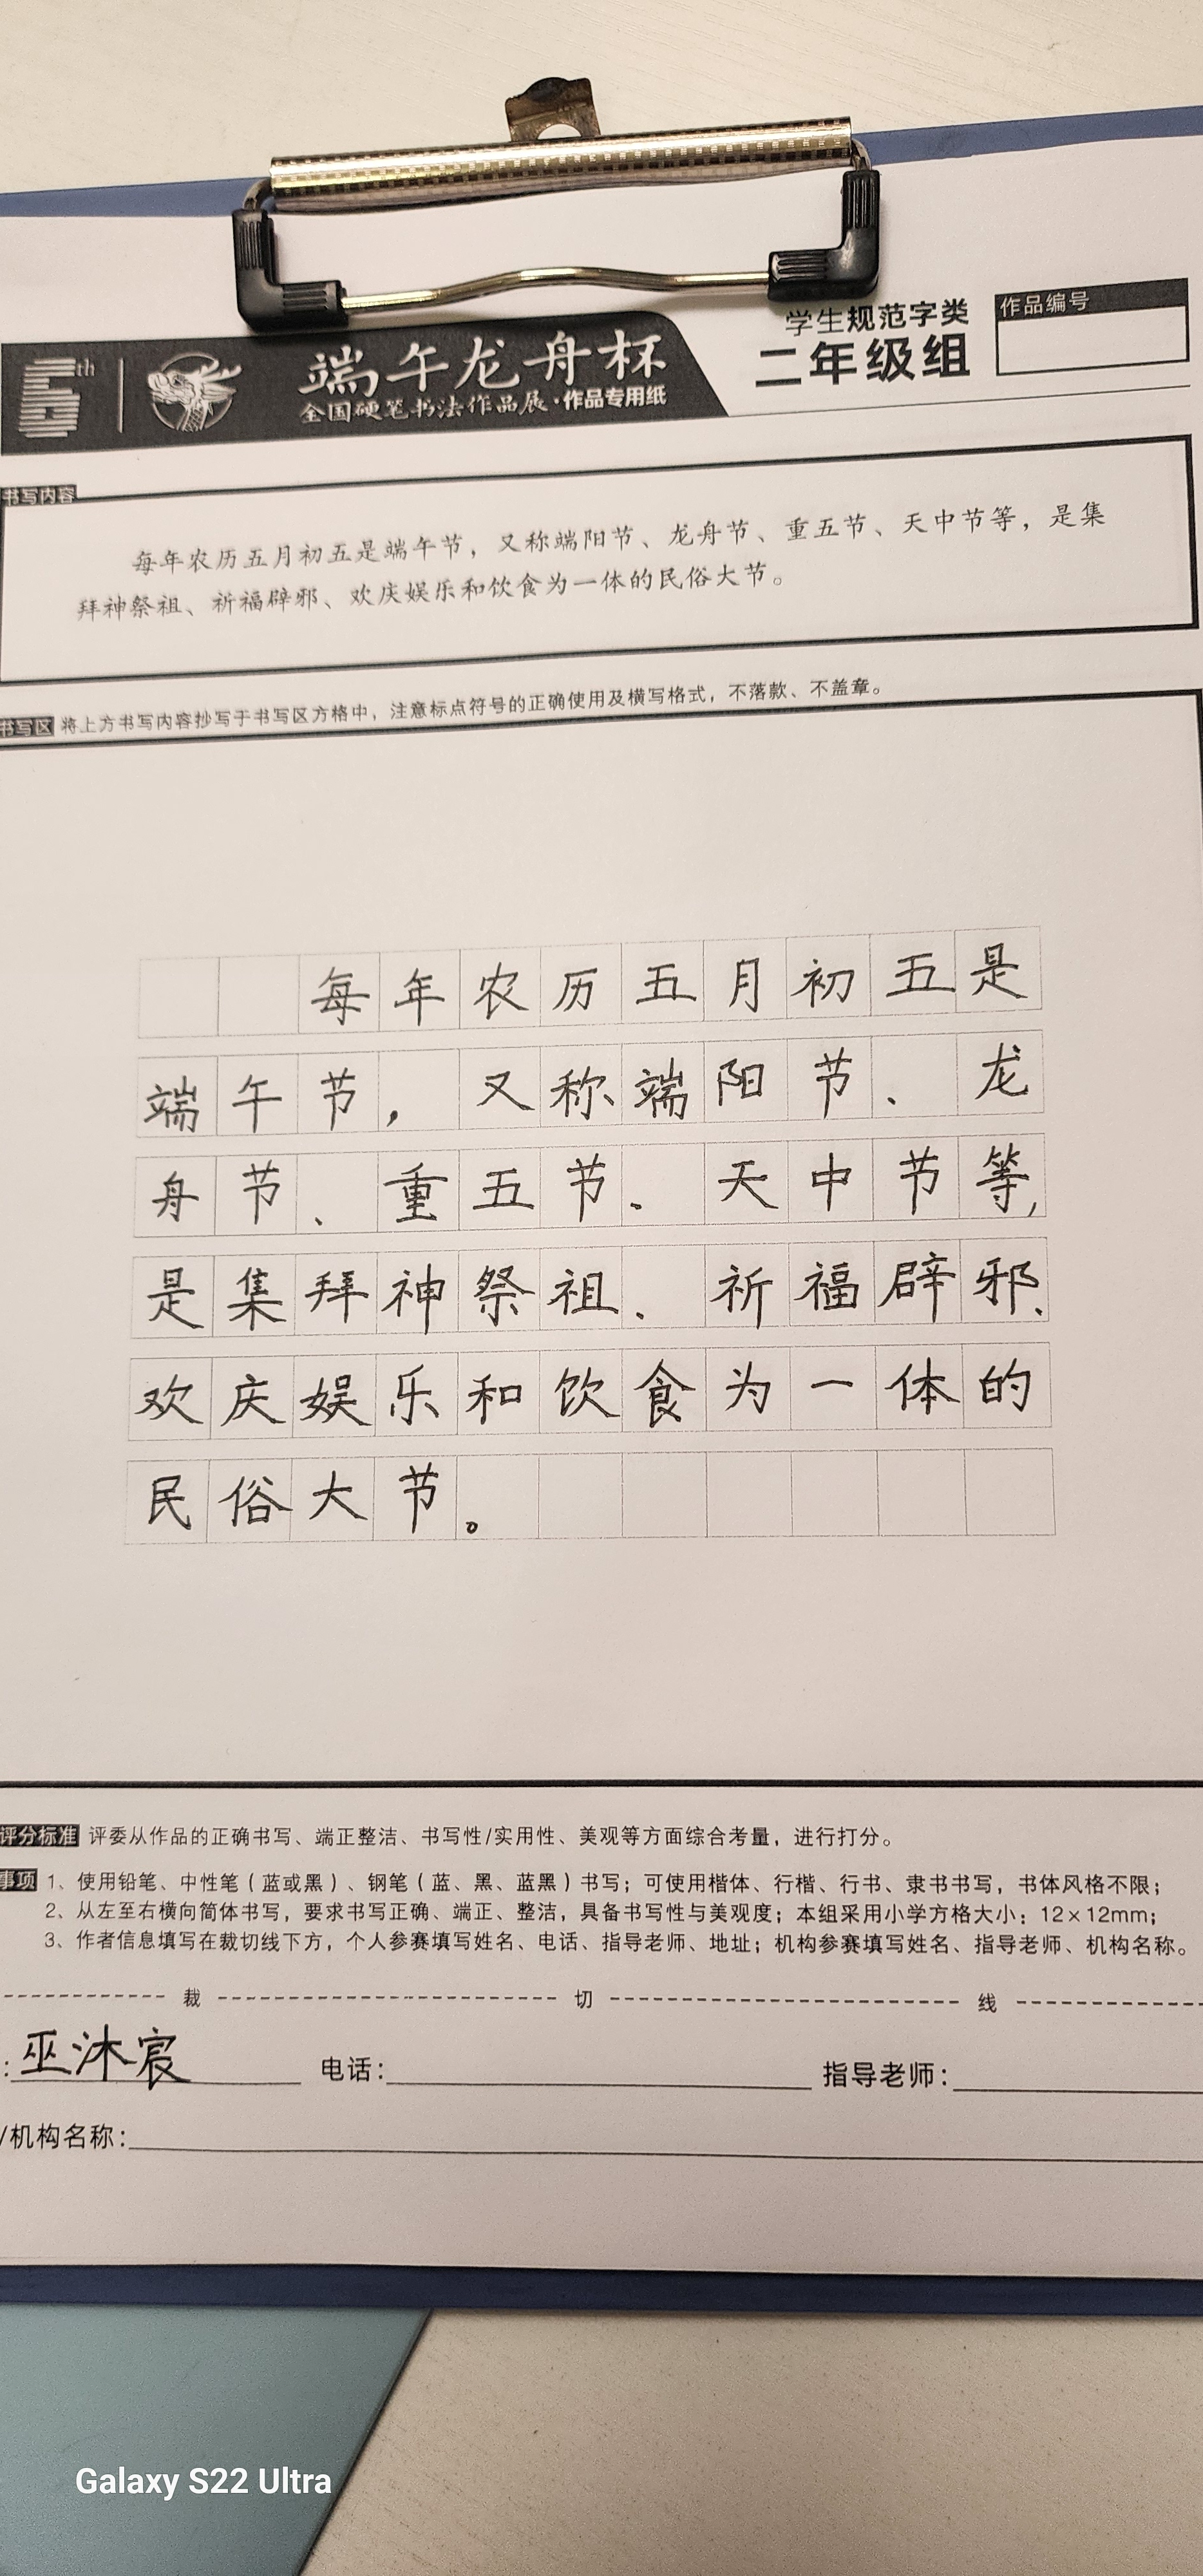 6th
端午龙舟杯
全国硬笔书法作品展·作品专用纸
学生规范字类
二年级组
作品编号
书写内容
每年农历五月初五是端午节，又称端阳节、龙舟节、重五节、天中节等，是集
拜神祭祖、祈福辟邪、欢庆娱乐和饮食为一体的民俗大节。
书写区 将上方书写内容抄写于书写区方格中，注意标点符号的正确使用及横写格式，不落款、不盖章。
每年农历五月初五是
端午节，又称端阳节、龙
舟节、重五节、天中节等，
是集拜神祭祖、祈福辟邪、
欢庆娱乐和饮食为一体的
民俗大节。
评分标准 评委从作品的正确书写、端正整洁、书写性/实用性、美观等方面综合考量，进行打分。
事项 1、使用铅笔、中性笔（蓝或黑）、钢笔（蓝、黑、蓝黑）书写；可使用楷体、行楷、行书、隶书书写，书体风格不限；
2、从左至右横向简体书写，要求书写正确、端正、整洁，具备书写性与美观度；本组采用小学方格大小：12×12mm；
3、作者信息填写在裁切线下方，个人参赛填写姓名、电话、指导老师、地址；机构参赛填写姓名、指导老师、机构名称。
裁 切 线
：巫沐宸 电话： 指导老师：
/机构名称：
Galaxy S22 Ultra